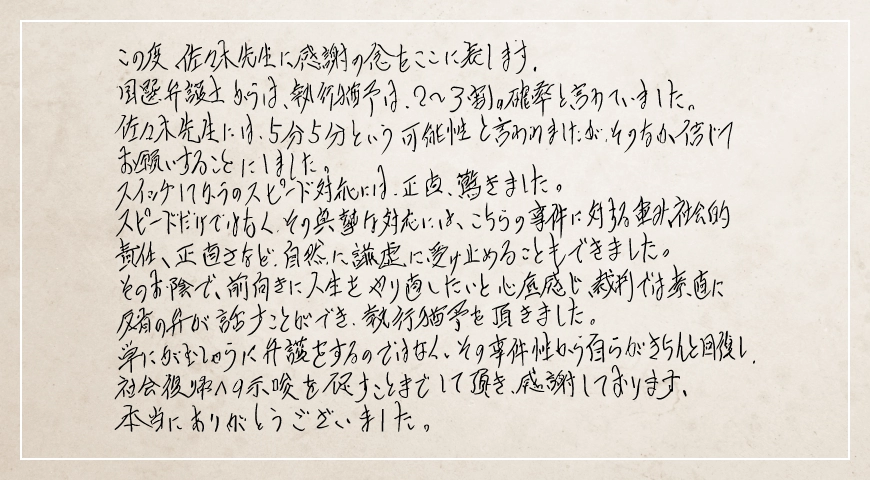 この度 佐々木先生に感謝の念をここに表します。
国選弁護士からは、執行猶予は、2〜3割の確率と言われていました。
佐々木先生には、5分5分という可能性と言われましたが、そのなか、信じて
お願いすることにしました。
スイッチ入ってからのスピード対応には、正直、驚きました。
スピードだけではなく、その真摯な対応には、こちらの事件に対する重み、社会的
責任、正直さなど、自然に謙虚に受け止めることもできました。
そのお陰で、前向きに人生をやり直したいと心底感じ、裁判では素直に
反省の弁が話すことができ、執行猶予を頂きました。
単にがむしゃらに弁護をするのではなく、その事件性から自らがきちんと回復し、
社会復帰への示唆を促すことまでして頂き、感謝しております。
本当にありがとうございました。